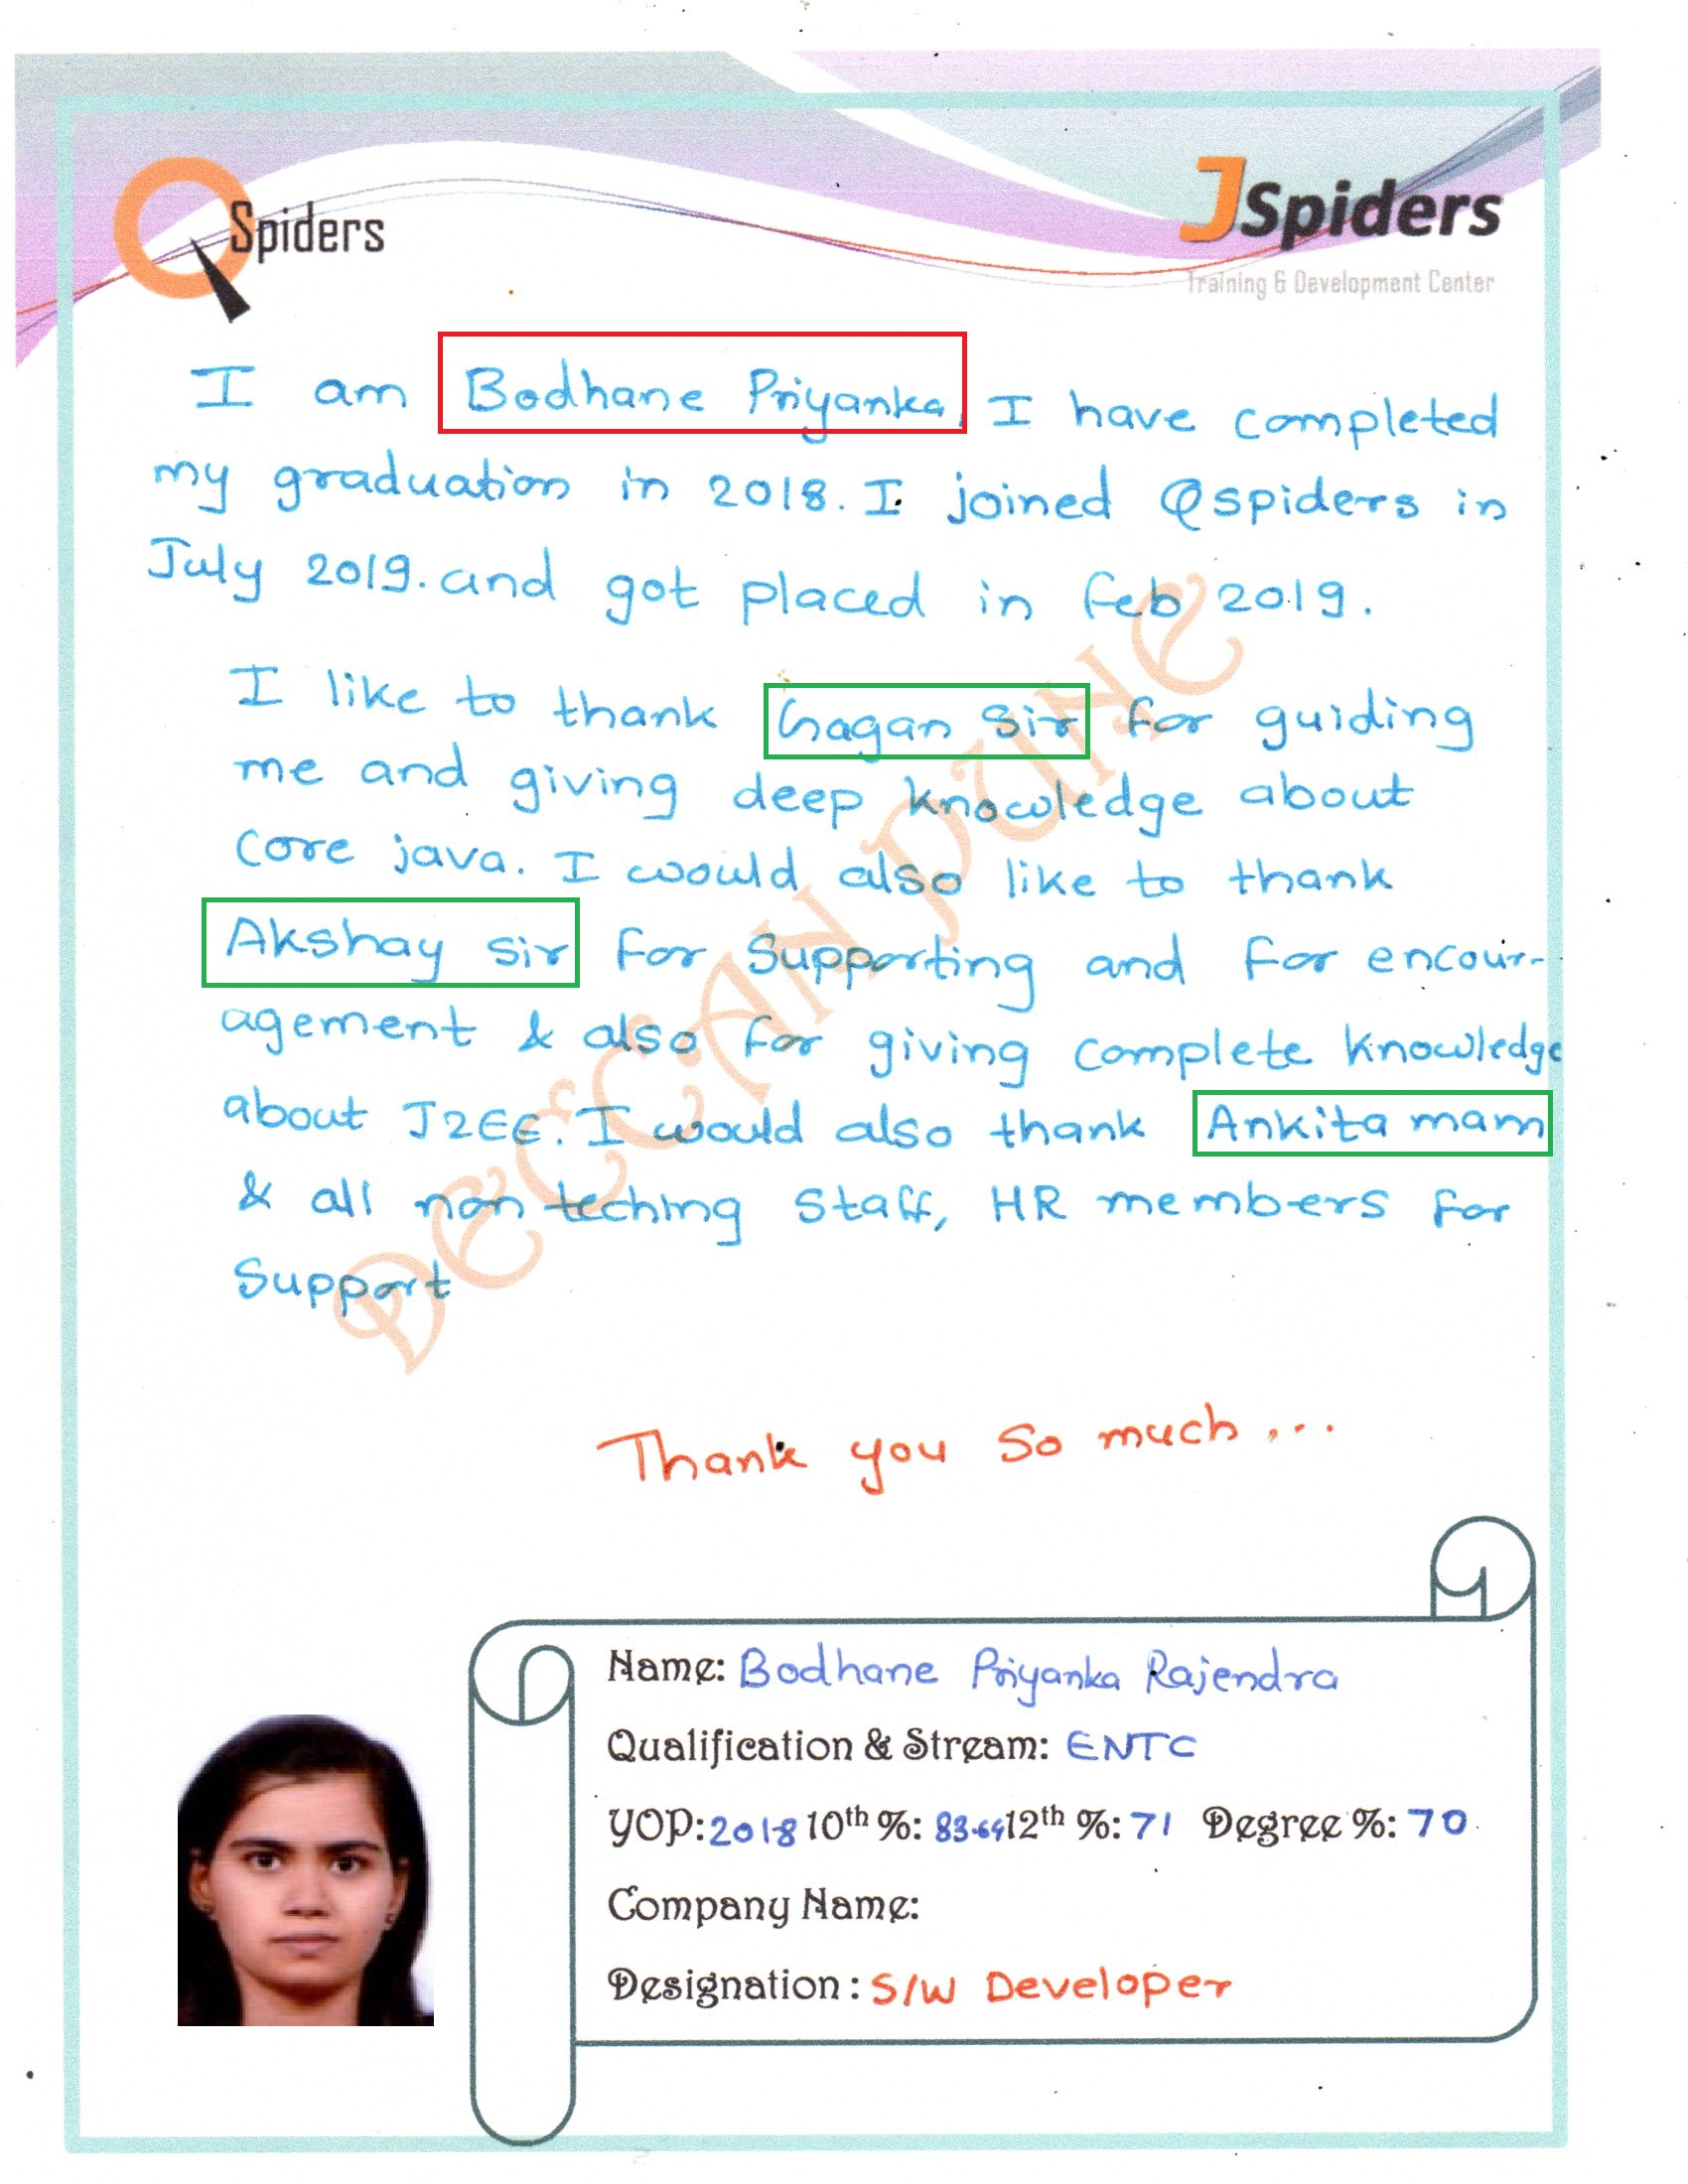 QSpiders
JSpiders
Training & Development Center
I am Bodhane Priyanka. I have completed
my graduation in 2018. I joined Qspiders in
July 2019. and got placed in Feb 2019.
I like to thank Gagan Sir for guiding
me and giving deep knowledge about
core java. I would also like to thank
Akshay Sir for Supporting and for encour-
agement & also for giving complete knowledge
about J2EE. I would also thank Ankita mam
& all non teching Staff, HR members for
Support
DECCAN PUNE
Thank you So much ...
Name: Bodhane Priyanka Rajendra
Qualification & Stream: ENTC
YOP: 2018 10th %: 83.64 12th %: 71 Degree %: 70
Company Name:
Designation: S/W Developer